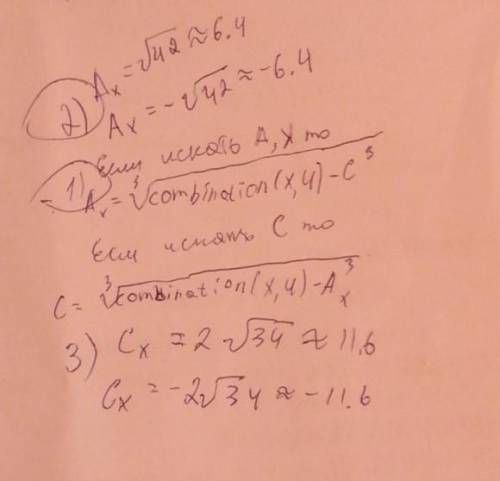 2) Aₓ = √42 ≈ 6.4
Aₓ = -√42 ≈ -6.4
Если искать A, X то
1) Aₓ = ∛(combination(x,4) - C³)
Если искать C то
C = ∛(combination(x,4) - Aₓ³)
3) Cₓ = 2√34 ≈ 11,6
Cₓ = -2√34 ≈ -11.6